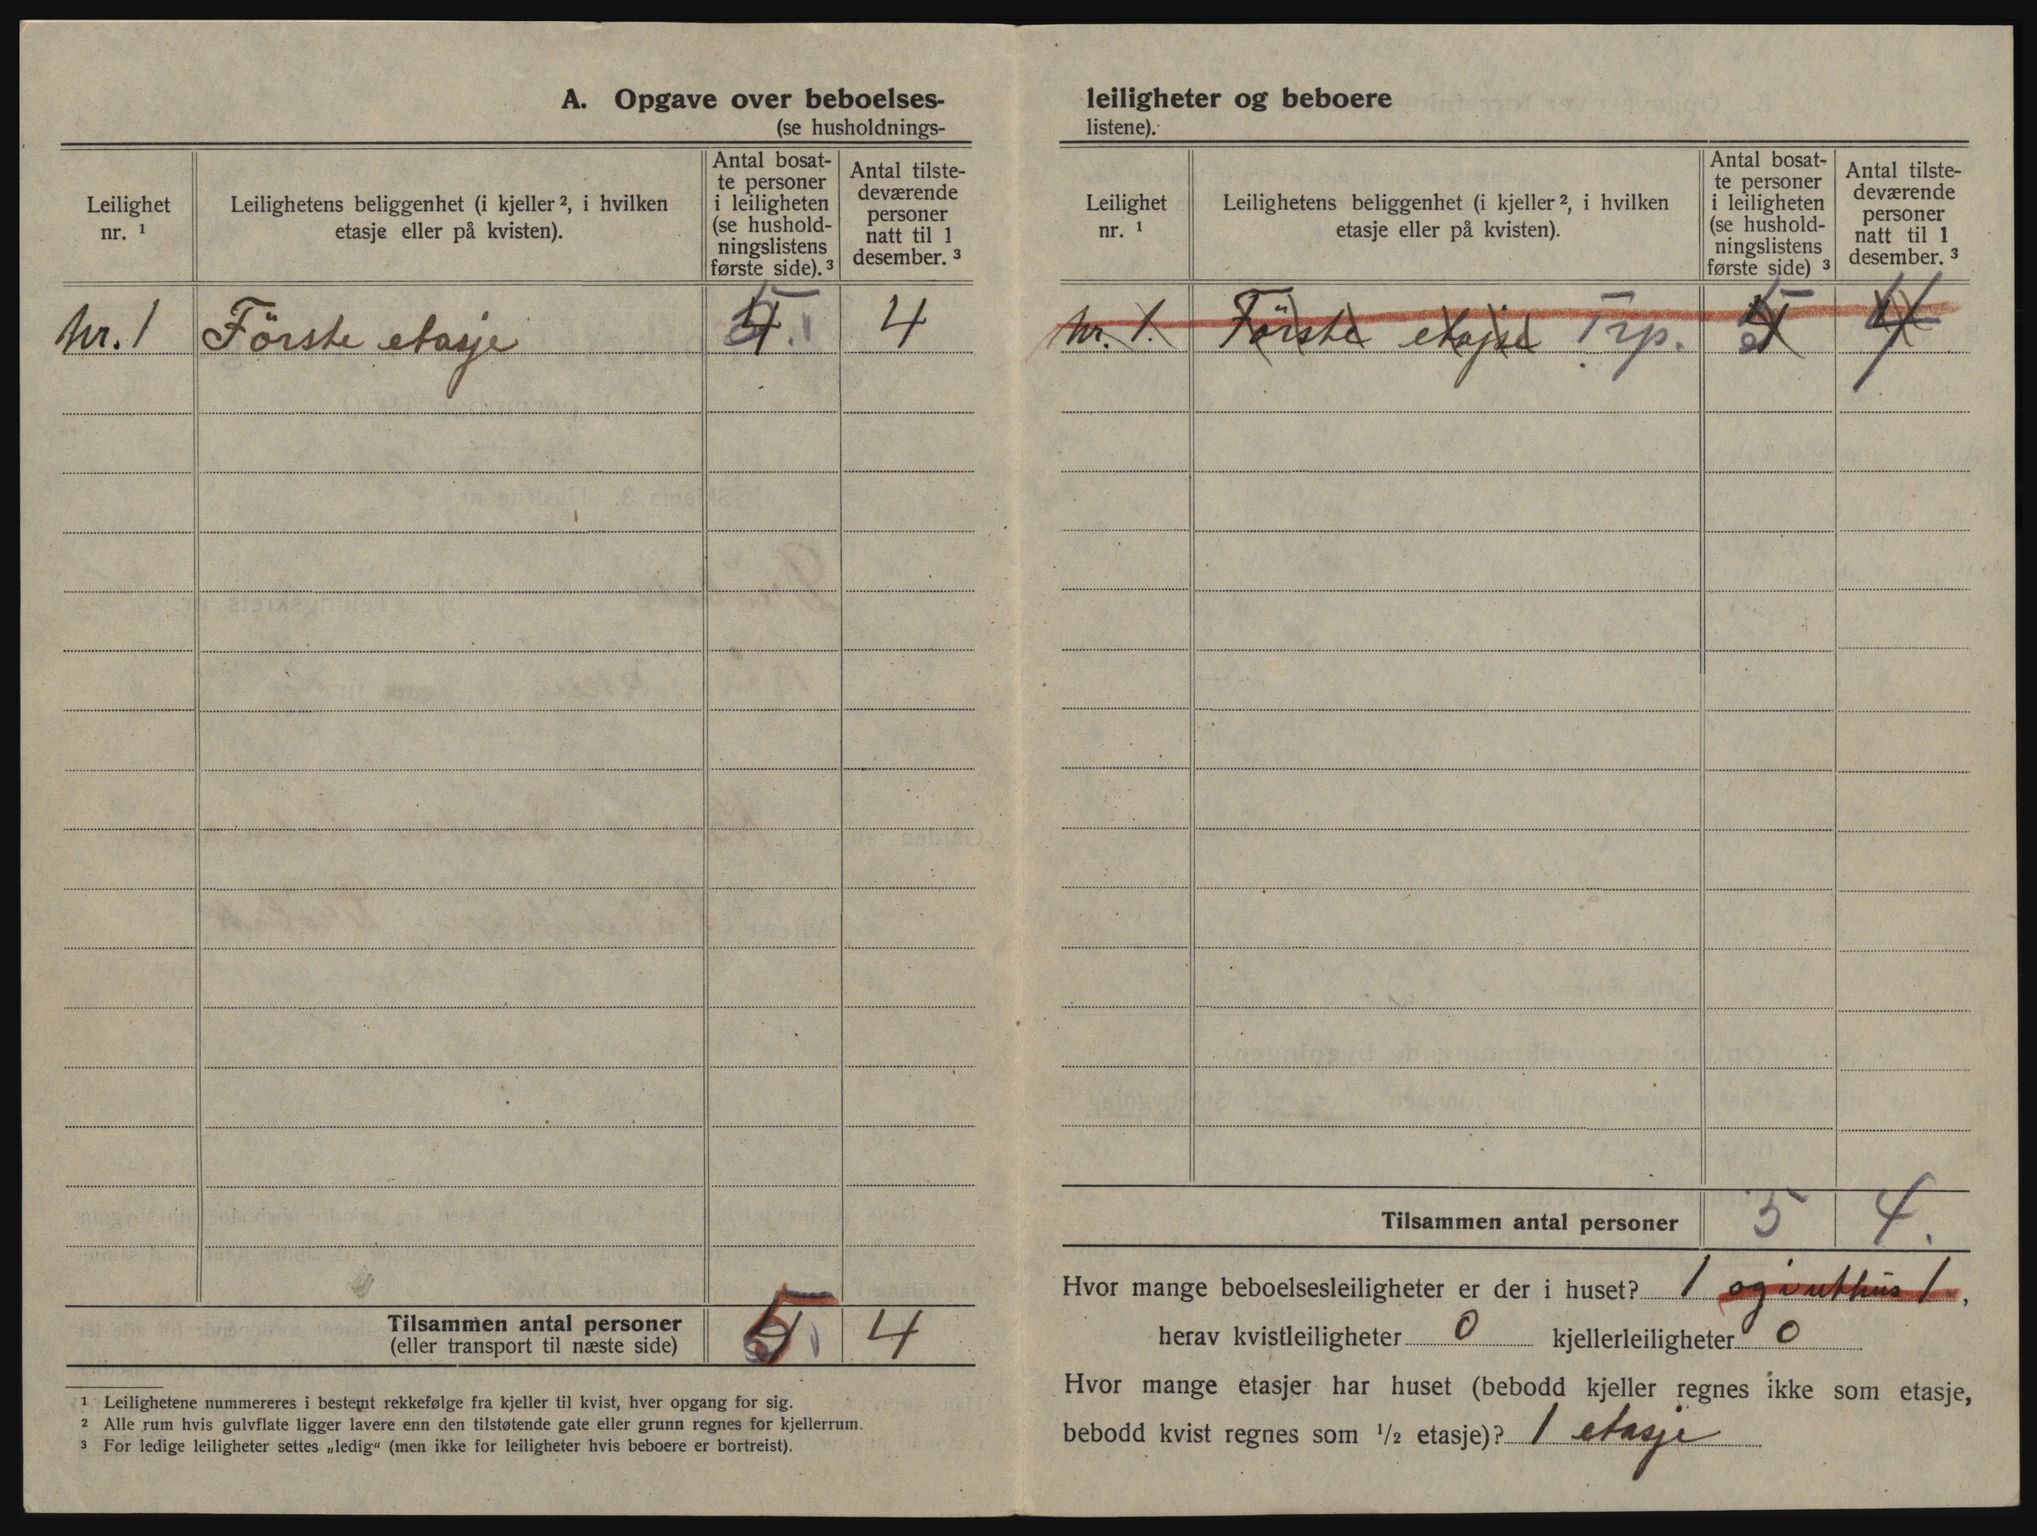 A. Opgave over beboelses-
(se husholdnings-
Leilighet
nr. ¹
Leilighetens beliggenhet (i kjeller ², i hvilken
etasje eller på kvisten).
Antal bosat-
te personer
i leiligheten
(se hushold-
ningslistens
første side). ³
Antal tilste-
deværende
personer
natt til 1
desember. ³
Nr. 1 Förste etasje 5 4
Tilsammen antal personer
(eller transport til næste side)
5 4
¹ Leilighetene nummereres i bestemt rekkefølge fra kjeller til kvist, hver opgang for sig.
² Alle rum hvis gulvflate ligger lavere enn den tilstøtende gate eller grunn regnes for kjellerrum.
³ For ledige leiligheter settes „ledig“ (men ikke for leiligheter hvis beboere er bortreist).
leiligheter og beboere
listene).
Leilighet
nr. ¹
Leilighetens beliggenhet (i kjeller ², i hvilken
etasje eller på kvisten).
Antal bosat-
te personer
i leiligheten
(se hushold-
ningslistens
første side) ³
Antal tilste-
deværende
personer
natt til 1
desember. ³
Nr. 1. Förste etajse Trp. 5 4
Tilsammen antal personer 5 4.
Hvor mange beboelsesleiligheter er der i huset? 1 og i uthus 1,
herav kvistleiligheter 0 kjellerleiligheter 0
Hvor mange etasjer har huset (bebodd kjeller regnes ikke som etasje,
bebodd kvist regnes som ½ etasje)? 1 etasje